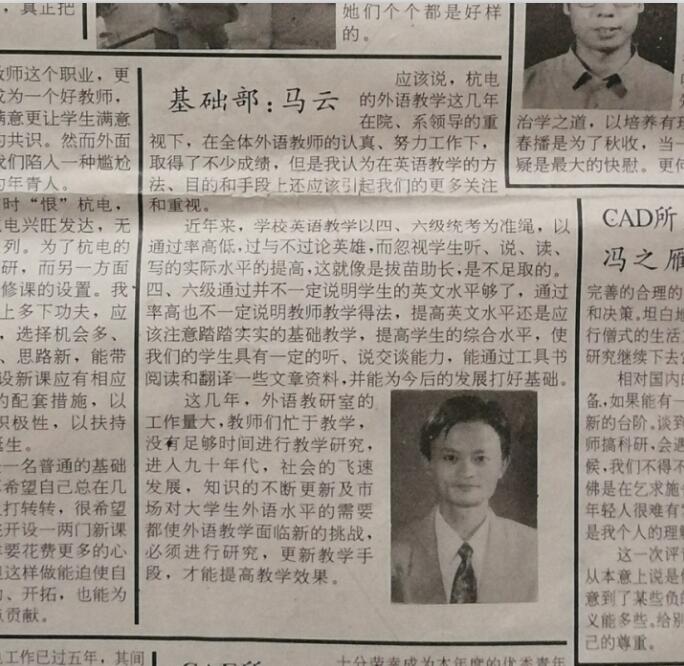 ，真正把
她们个个都是好样
的。
教师这个职业，更
成为一个好教师，
满意更让学生满意
的共识。然而外面
我们陷入一种尴尬
的年青人。
时“恨”杭电，
电兴旺发达，无
列。为了杭电的
研，而另一方面
修课的设置。我
上多下功夫，应
，选择机会多、
、思路新，能带
设新课应有相应
的配套措施，以
积极性，以扶持
诞生。
一名普通的基础
希望自己总在几
打转转，很希望
开设一两门新课
要花费更多的心
但这样做能迫使自
、开拓，也能为
点贡献。
电工作已过五年，其间
基础部：马云
应该说，杭电
的外语教学这几年
在院、系领导的重
视下，在全体外语教师的认真、努力工作下，
取得了不少成绩，但是我认为在英语教学的方
法、目的和手段上还应该引起我们的更多关注
和重视。
近年来，学校英语教学以四、六级统考为准绳，以
通过率高低，过与不过论英雄，而忽视学生听、说、读、
写的实际水平的提高，这就像是拔苗助长，是不足取的。
四、六级通过并不一定说明学生的英文水平够了，通过
率高也不一定说明教师教学得法，提高英文水平还是应
该注意踏踏实实的基础教学，提高学生的综合水平，使
我们的学生具有一定的听、说交谈能力，能通过工具书
阅读和翻译一些文章资料，并能为今后的发展打好基础。
这几年，外语教研室的
工作量大，教师们忙于教学，
没有足够时间进行教学研究，
进入九十年代，社会的飞速
发展，知识的不断更新及市
场对大学生外语水平的需要
都使外语教学面临新的挑战，
必须进行研究，更新教学手
段，才能提高教学效果。
CAD所
十分荣幸成为本年度的优秀青年
治学之道，以培养有
春播是为了秋收，当一
疑是最大的快慰。更何
CAD所
冯之雁
完善的合理的
和决策。坦白地
行僧式的生活
研究继续下去
相对国内的
备，如果能有一
新的台阶。谈到
师搞科研，会遇
候，我们不得不
佛是在乞求施
年轻人很难有
是我个人的理解
这一次评
从本意上说是
意到了某些负的
义能多些。给别
己的尊重。